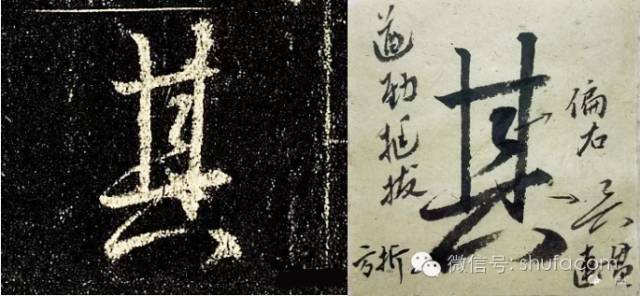 其
其
遒劲挺拔
偏右
方折
微信号: shufacom